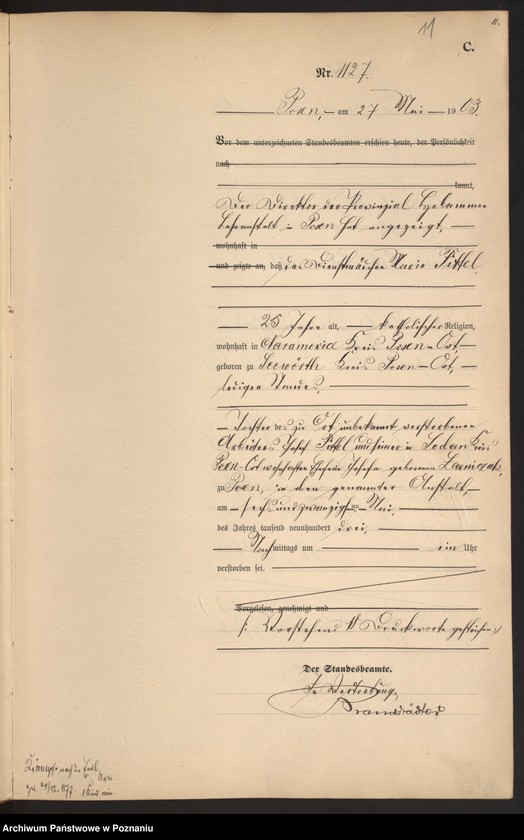 11
11.
C.
Nr. 1127.
Posen, am 27 Mai 1903.
Vor dem unterzeichneten Standesbeamten erschien heute, der Persönlichkeit
nach
kannt,
Der Direktor der Provinzial Hebammen
Lehranstalt in Posen hat angezeigt,
wohnhaft in
und zeigte an, daß das Dienstmädchen Marie Fittel
25 Jahre alt, katholischer Religion,
wohnhaft in Kreis Posen-Ost,
geboren zu Seewörth Kreis Posen-Ost,
ledigen Standes,
Tochter des zu Ort unbekannt verstorbenen
Arbeiters Josef Fittel und seiner in Sedan Kreis
Posen-Ost wohnhaften Ehefrau Josefa geborenen Lawniczak,
zu Posen, in der genannten Anstalt,
am sechsundzwanzigsten Mai,
des Jahres tausend neunhundert drei,
Nachmittags um ein Uhr
verstorben sei.
Vorgelesen, genehmigt und
/: Vorstehend 11 Druckworte gestrichen :/
Der Standesbeamte.
In Vertretung
Brandstädter
Krämpfe nach der Entb.